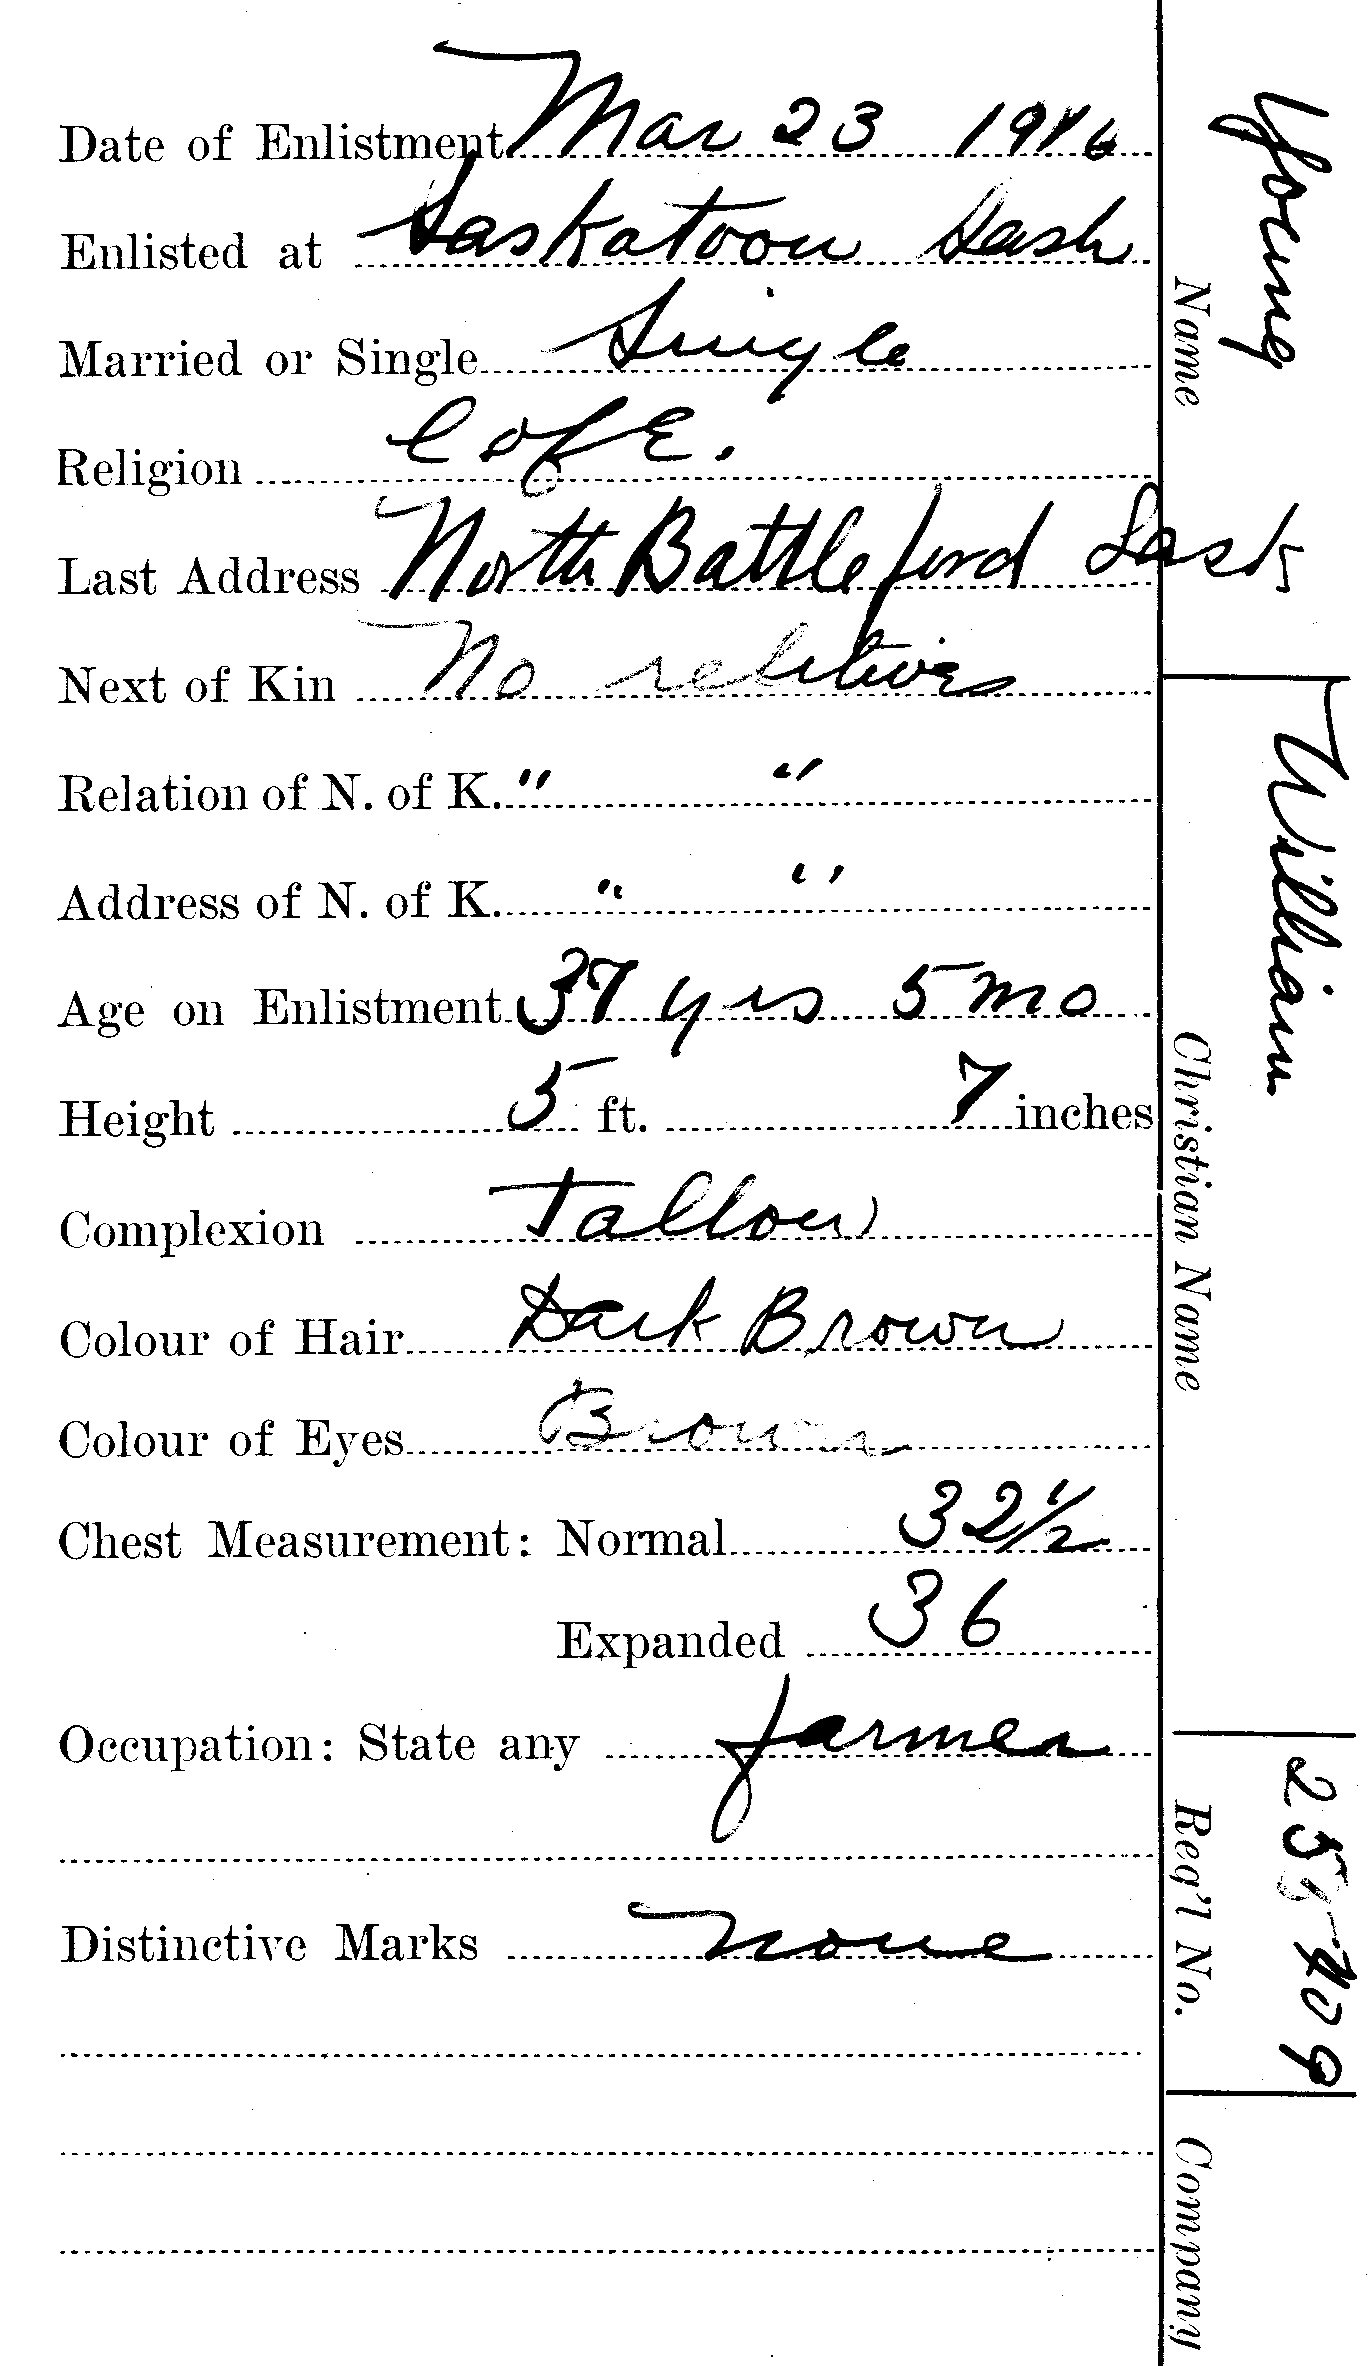 Date of Enlistment Mar 23 1916
Enlisted at Saskatoon Sask
Married or Single Single
Religion C of E.
Last Address North Battleford Sask
Next of Kin No relatives
Relation of N. of K. " "
Address of N. of K. " "
Age on Enlistment 37 yrs 5 mo
Height 5 ft. 7 inches
Complexion Tallow
Colour of Hair Dark Brown
Colour of Eyes Brown
Chest Measurement: Normal 32½
Expanded 36
Occupation: State any farmer
Distinctive Marks none
Young
Name
William
Christian Name
Reg'l No.
Company